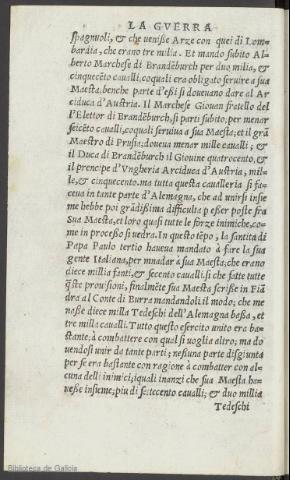 LA GVERRA
spagnuoli, & che venisse Arze con quei di Lom=
bardia, che erano tre milia. Et mando subito Al=
berto Marchese di Brandēburch per duo milia, &
cinquecēto cavalli, co quali era obligato seruire a sua
Maesta, benche parte d'essi si doueuano dare al Ar
ciduca d'Austria. Il Marchese Giouan fratello del
l'Elettor di Brandēburch, si parti subito, per menar
seicēto cavalli, co quali seruiua a sua Maesta; et il grā
Maestro di Prusia, doueua menar mille cavalli; &
il Duca di Brandēburch il Giouine quatrocento, &
il prencipe d'Vngheria Arciduca d'Austria, mil=
le, & cinquecento. ma tutta questa cavalleria si fa=
ceua in tante parte d'Alemagna, che ad unirsi insie
me hebbe poi grādissima difficulta p esser poste fra
Sua Maesta, et loro quasi tutte le forze inimiche, co=
me in processo si uedra. In questo tēpo, la santita di
Papa Paulo tertio haueua mandato à fare la sua
gente Italiana, per mnadar à sua Maesta; che erano
diece millia fanti, & secento cavalli. si che fatte tutte
q̄ste prouisioni, finalmēte sua Maesta scrisse in Fiā
dra al Conte di Burra mandandoli il modo; che me
nasse diece milla Tedeschi dell'Alemagna bassa, et
tre milla cavalli. Tutto questo esercito unito era ba=
stante, à combattere con qual si uoglia altro; ma do
uendosi unir da tante parti; nessuna parte disgiunta
per se era bastante con ragione à combatter con al=
cuna delli inimici; iquali inanzi che sua Maesta ha=
uesse insieme, piu di settecento cavalli; & duo millia
Tedeschi
Biblioteca de Galicia